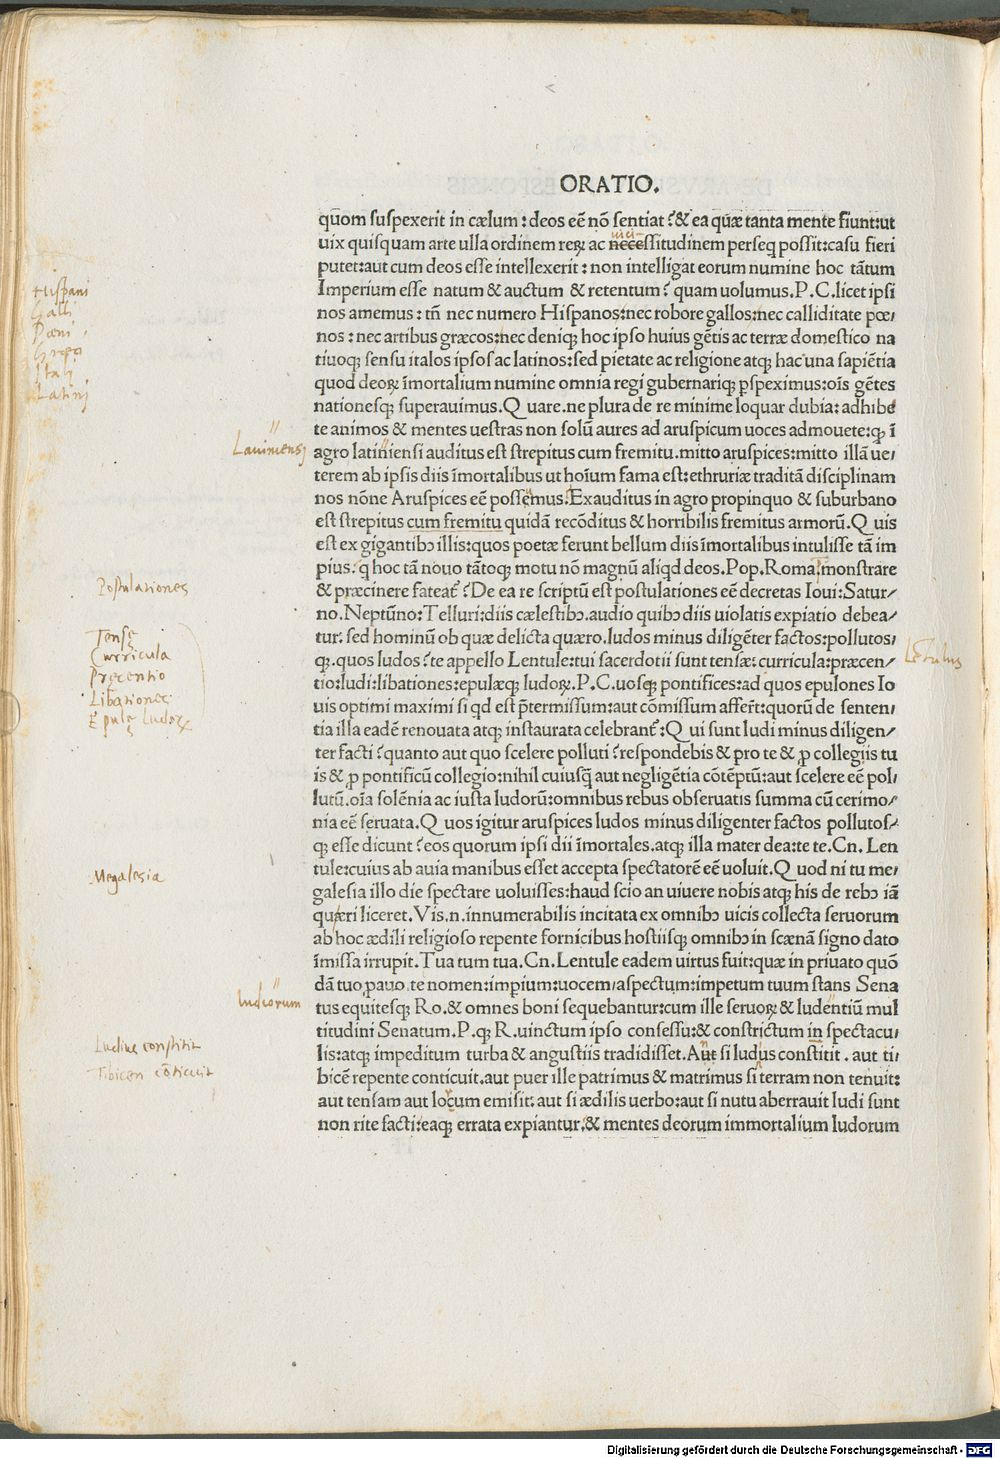 ORATIO.
quom suspexerit in cælum : deos eē nō sentiat ? & ea quæ tanta mente fiunt:ut
uix quisquam arte ulla ordinem reꝝ ac necessitudinem perseq possit:casu fieri
uici
putet:aut cum deos esse intellexerit : non intelligat eorum numine hoc tātum
Imperium esse natum & auctum & retentum ? quam uolumus.P.C.licet ipsi
nos amemus : tn̄ nec numero Hispanos:nec robore gallos:nec calliditate pœ/
nos : nec artibus græcos:nec deniqꝫ hoc ipso huius gētis ac terræ domestico na
tiuoqꝫ sensu italos ipsos ac latinos:sed pietate ac religione atqꝫ hac una sapiētia
quod deoꝝ īmortalium numine omnia regi gubernariqꝫ ꝑspeximus:oīs gētes
nationesqꝫ superauimus.Quare.ne plura de re minime loquar dubia: adhibe
te animos & mentes uestras non solū aures ad aruspicum uoces admouete:qꝫ ī
agro latiniensi auditus est strepitus cum fremitu.mitto aruspices:mitto illā ue/
terem ab ipsis diis īmortalibus ut hoīum fama est:ethruriæ traditā disciplinam
nos nōne Aruspices eē possemus.Exauditus in agro propinquo & suburbano
est strepitus cum fremitu quidā recōditus & horribilis fremitus armorū.Quis
est ex gigantibꝰ illis:quos poetæ ferunt bellum diis īmortalibus intulisse tā im
pius: q̄ hoc tā nouo tātoqꝫ motu nō magnū aliqd deos.Pop.Roma.monstrare
& præcinere fateat᷑ ? De ea re scriptū est postulationes eē decretas Ioui:Satur/
no.Neptūno:Telluri:diis cælestibꝰ.audio quibꝰ diis uiolatis expiatio debea/
tur: sed hominū ob quæ delicta quæro.ludos minus diligēter factos:pollutos/
qꝫ.quos ludos ? te appello Lentule:tui sacerdotii sunt tensæ: curricula:præcen/
tio:ludi:libationes:epulæqꝫ ludoꝝ.P.C.uosqꝫ pontifices:ad quos epulones Io
uis optimi maximi si qd est p̄termissum:aut cōmissum affert᷑:quorū de senten/
tia illa eadē renouata atqꝫ instaurata celebrant᷑ :Qui sunt ludi minus diligen/
ter facti ? quanto aut quo scelere polluti ? respondebis & pro te & ꝓ collegiis tu
is & ꝓ pontificū collegio:nihil cuiusq̄ aut negligētia cōtēptū:aut scelere eē pol/
lutū.oīa solēnia ac iusta ludorū:omnibus rebus obseruatis summa cū cerimo/
nia eē seruata.Quos igitur aruspices ludos minus diligenter factos pollutos/
qꝫ esse dicunt ? eos quorum ipsi dii īmortales.atqꝫ illa mater dea:te te.Cn. Len
tule:cuius ab auia manibus esset accepta spectatorē eē uoluit.Quod ni tu me/
galesia illo die spectare uoluisses:haud scio an uiuere nobis atqꝫ his de rebꝰ iā
quæri liceret.Vis.n.innumerabilis incitata ex omnibꝰ uicis collecta seruorum
ab hoc ædili religioso repente fornicibus hostiisqꝫ omnibꝰ in scænā signo dato
īmissa irrupit.Tua tum tua.Cn.Lentule eadem uirtus fuit:quæ in priuato quō
dā tuo ꝓauo.te nomen:imꝑium:uocem/aspectum:impetum tuum stans Sena
tus equitesqꝫ Ro.& omnes boni sequebantur:cum ille seruoꝝ & ludentiū mul
titudini Senatum.P.qꝫ R.uinctum ipso consessu:& constrictum in spectacu/
lis:atqꝫ impeditum turba & angustiis tradidisset.Aut si ludus constitit . aut ti/
bicē repente conticuit.aut puer ille patrimus & matrimus si terram non tenuit:
aut tensam aut locum emisit: aut si ædilis uerbo:aut si nutu aberrauit ludi sunt
non rite facti:eaqꝫ errata expiantur.& mentes deorum immortalium ludorum
Hispani
Galli
Pœni
Græci
Itali
Latini
Lauiniensi
Postulationes
Tensę
Curricula
Pręcentio
Libationes
Epulę ludoꝝ
Lētulus
Megalesia
ludiorum
Ludius constitit
Tibicen cōticuit
Digitalisierung gefördert durch die Deutsche Forschungsgemeinschaft - DFG